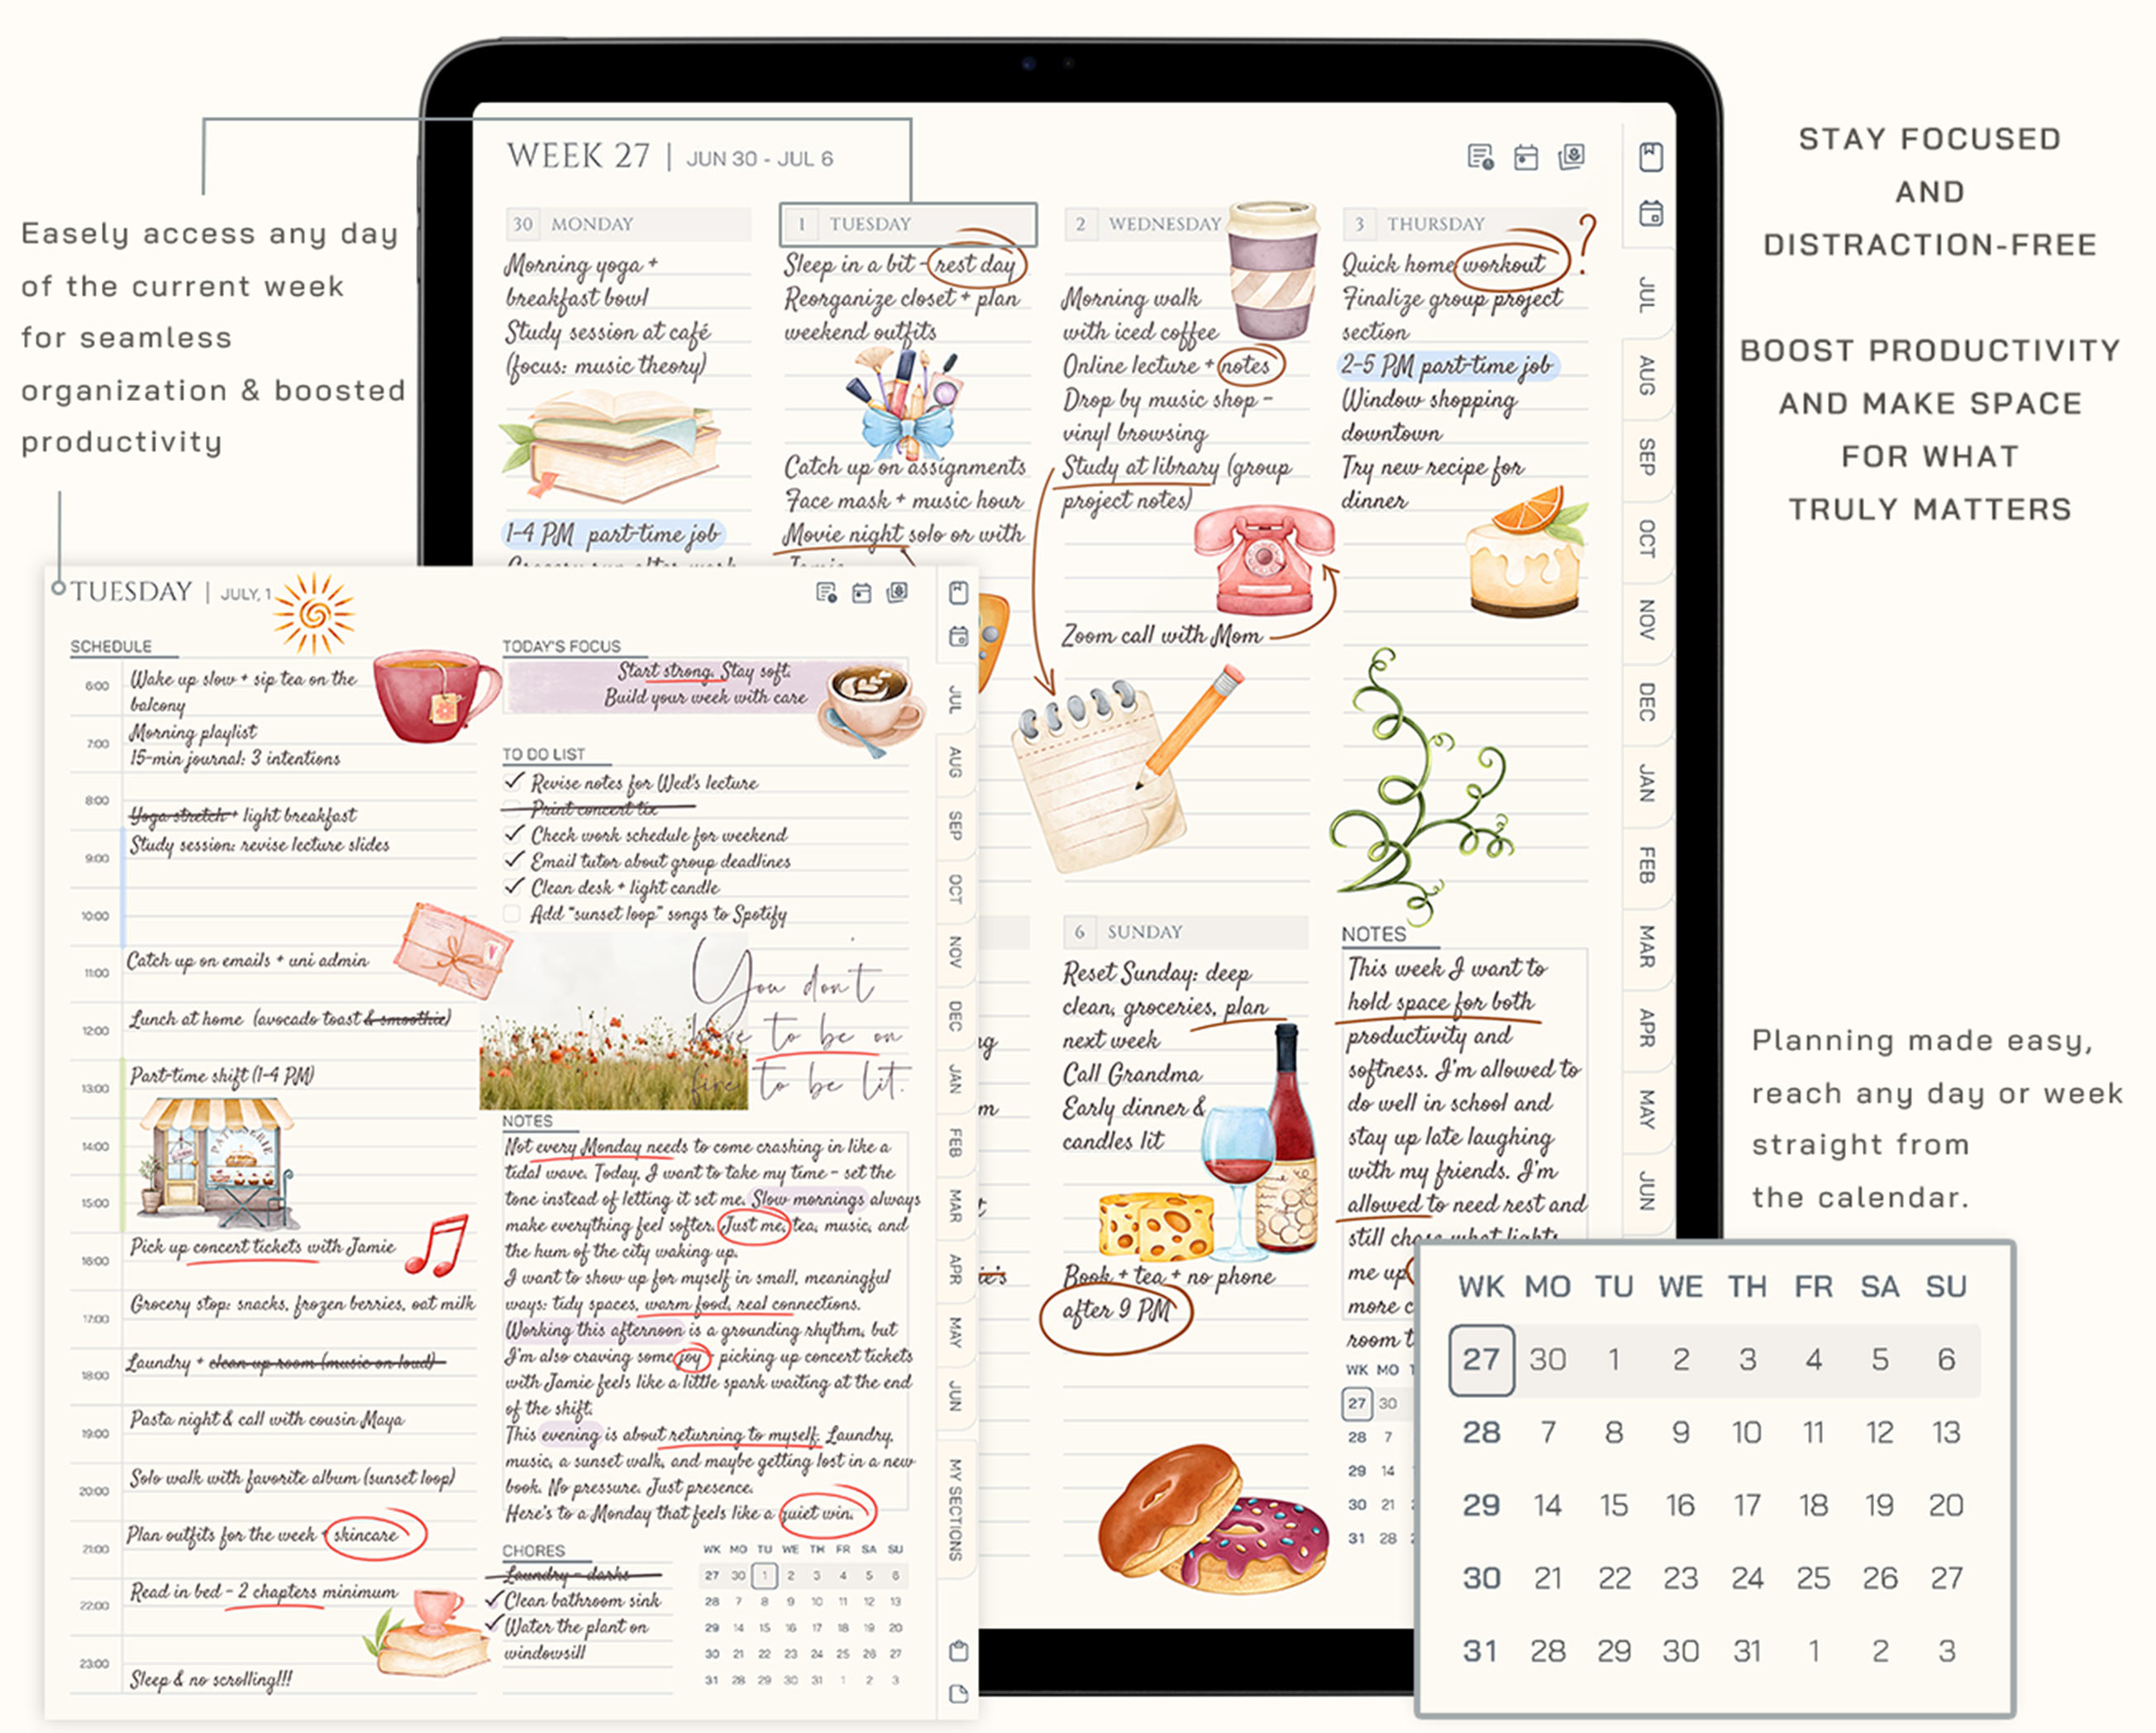 Easely access any day
of the current week
for seamless
organization & boosted
productivity
STAY FOCUSED
AND
DISTRACTION-FREE
BOOST PRODUCTIVITY
AND MAKE SPACE
FOR WHAT
TRULY MATTERS
WEEK 27 | JUN 30 - JUL 6
30 MONDAY
Morning yoga +
breakfast bowl
Study session at café
(focus: music theory)
1-4 PM part-time job
Grocery run after work
1 TUESDAY
Sleep in a bit - rest day
Reorganize closet + plan
weekend outfits
Catch up on assignments
Face mask + music hour
Movie night solo or with
Jamie
2 WEDNESDAY
Morning walk
with iced coffee
Online lecture + notes
Drop by music shop -
vinyl browsing
Study at library (group
project notes)
Zoom call with Mom
3 THURSDAY
?
Quick home workout
Finalize group project
section
2-5 PM part-time job
Window shopping
downtown
Try new recipe for
dinner
6 SUNDAY
Reset Sunday: deep
clean, groceries, plan
next week
Call Grandma
Early dinner &
candles lit
Book + tea + no phone
after 9 PM
NOTES
This week I want to
hold space for both
productivity and
softness. I'm allowed to
do well in school and
stay up late laughing
with my friends. I'm
allowed to need rest and
still chase what lights
me up
more c
room t
WK MO
27 30
28 7
29 14
30 21
31 28
JUL
AUG
SEP
OCT
NOV
DEC
JAN
FEB
MAR
APR
MAY
JUN
TUESDAY | JULY, 1
SCHEDULE
6:00 Wake up slow + sip tea on the
balcony
Morning playlist
7:00
15-min journal: 3 intentions
8:00
Yoga stretch + light breakfast
Study session: revise lecture slides
9:00
10:00
Catch up on emails + uni admin
11:00
Lunch at home (avocado toast & smoothie)
12:00
Part-time shift (1-4 PM)
13:00
PATISSERIE
14:00
15:00
Pick up concert tickets with Jamie
16:00
Grocery stop: snacks, frozen berries, oat milk
17:00
Laundry + clean up room (music on loud)
18:00
Pasta night & call with cousin Maya
19:00
Solo walk with favorite album (sunset loop)
20:00
Plan outfits for the week + skincare
21:00
Read in bed - 2 chapters minimum
22:00
23:00
Sleep & no scrolling!!!
TODAY'S FOCUS
Start strong. Stay soft.
Build your week with care
TO DO LIST
Revise notes for Wed's lecture
Print concert tix
Check work schedule for weekend
Email tutor about group deadlines
Clean desk + light candle
Add "sunset loop" songs to Spotify
You don't
have to be on
fire to be lit.
NOTES
Not every Monday needs to come crashing in like a
tidal wave. Today, I want to take my time - set the
tone instead of letting it set me. Slow mornings always
make everything feel softer. Just me, tea, music, and
the hum of the city waking up.
I want to show up for myself in small, meaningful
ways: tidy spaces, warm food, real connections.
Working this afternoon is a grounding rhythm, but
I'm also craving some joy - picking up concert tickets
with Jamie feels like a little spark waiting at the end
of the shift.
This evening is about returning to myself. Laundry,
music, a sunset walk, and maybe getting lost in a new
book. No pressure. Just presence.
Here's to a Monday that feels like a quiet win.
CHORES
Laundry - darks
Clean bathroom sink
Water the plant on
windowsill
WK MO TU WE TH FR SA SU
27 30 1 2 3 4 5 6
28 7 8 9 10 11 12 13
29 14 15 16 17 18 19 20
30 21 22 23 24 25 26 27
31 28 29 30 31 1 2 3
JUL
AUG
SEP
OCT
NOV
DEC
JAN
FEB
MAR
APR
MAY
JUN
MY SECTIONS
Planning made easy,
reach any day or week
straight from
the calendar.
WK MO TU WE TH FR SA SU
27 30 1 2 3 4 5 6
28 7 8 9 10 11 12 13
29 14 15 16 17 18 19 20
30 21 22 23 24 25 26 27
31 28 29 30 31 1 2 3